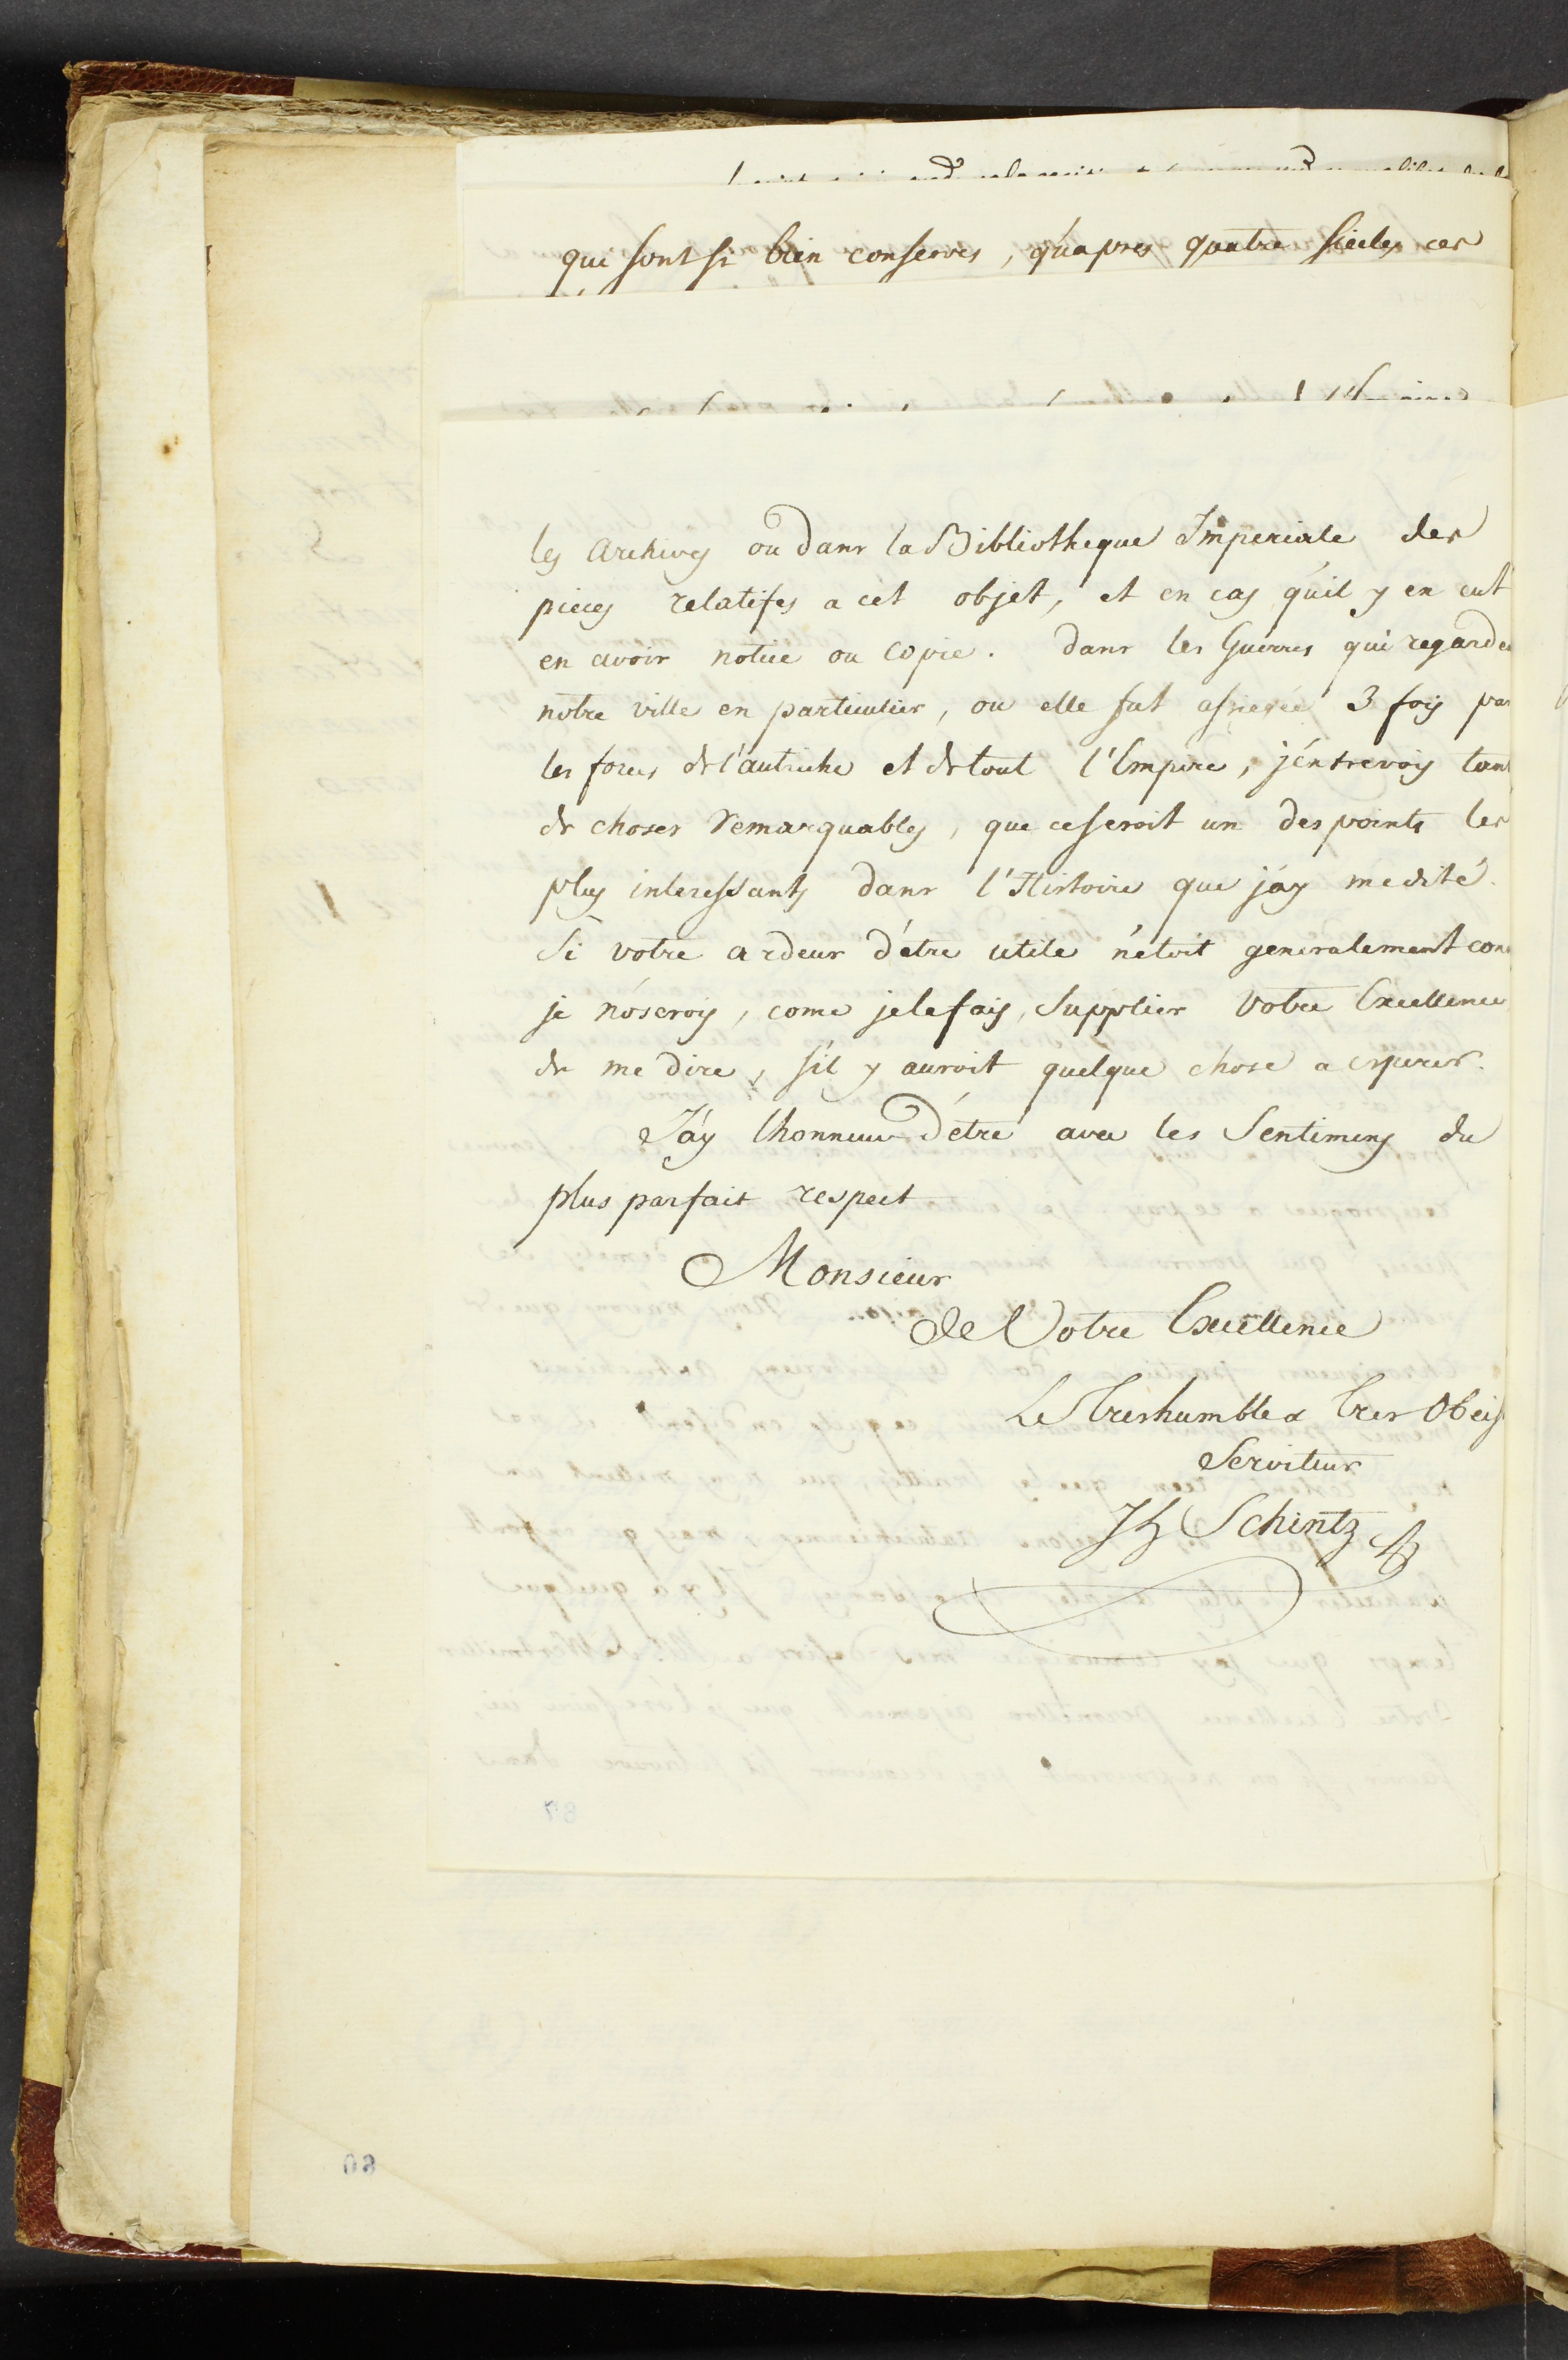 qui sont si bien conservés, qu'apres quatre siecles ces
les Archives ou dans la Bibliotheque Imperiale des
pieces relatifes a cet objet, et en cas qu'il y en eut
en avoir notice ou copie. dans les Guerres qui regarde
notre ville en particulier, ou elle fut assiegée 3 fois par
les forces de l'autriche et de tout l'Empire, j'entrevois tant
de choses remarquables, que ce seroit un des points les
plus interessants dans l'Histoire que j'ay medité.
Si votre ardeur d'être utile n'étoit generalement con
je n'oserois, come je le fais, supplier Votre Excellence
de me dire, s'il y auroit quelque chose a esperer.
J'ay lhonneur d'être avec les Sentimens du
plus parfait respect
Monsieur
de Votre Excellence
Le Treshumble & Tres Obeiss
Serviteur
JH Schintz
87
80